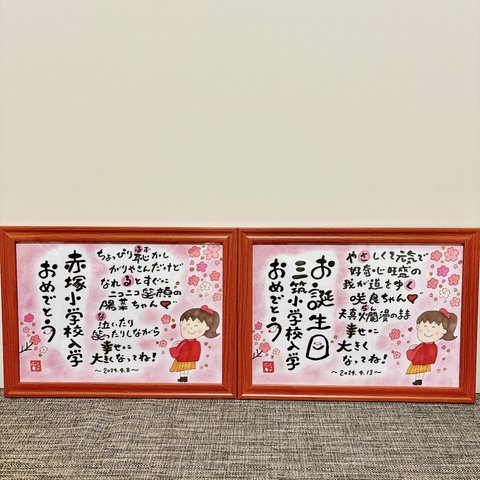 赤塚小学校入学
おめでとう
ちょっぴり恥かし
がりやさんだけど
なれるとすぐに
ニコニコ笑顔の
陽菜ちゃん♥
泣いたり
笑ったりしながら
幸せに
大きくなってね!
〜2024.4.8〜
お誕生日
三筑小学校入学
おめでとう
やさしくて元気で
好奇心旺盛の
我が道をゆく
咲良ちゃん♥
天真爛漫のまま
幸せに
大きく
なってね!
〜2024.4.13〜